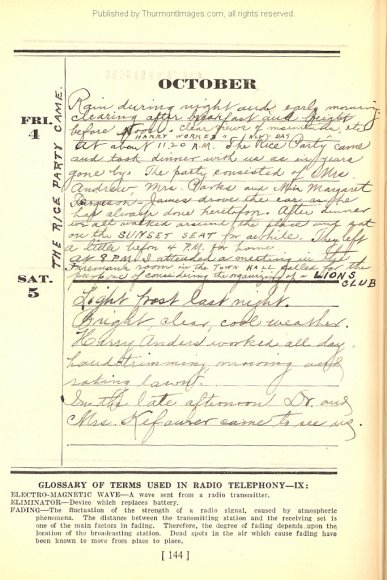 Published by ThurmontImages.com, all rights reserved.
OCTOBER
FRI.
4
THE RICE PARTY CAME.
Rain during night and early morning
clearing after breakfast and bright
before noon. clear view of mountains etc
"HARRY WORKED" "ALL DAY"
At about 11.20 A.M. The Rice Party came
and took dinner with us as in years
gone by. The party consisted of Mrs
Andrew, Mrs. Parks and Miss Margaret
James drove the car as he
has always done heretofore. After dinner
we all walked around the place and sat
on the SUNSET SEAT for awhile. They left
a little before 4 P.M. for home.
At 8 P.M. I attended a meeting in the
Firemans room in the TOWN HALL called for the
purpose of considering the organizing of a LIONS
CLUB
SAT.
5
Light frost last night.
Bright, clear, cool weather.
Harry Anders worked all day,
hand trimming, mowing and
raking lawn.
In the late afternoon Dr. and
Mrs. Kefauver came to see us.
GLOSSARY OF TERMS USED IN RADIO TELEPHONY—IX:
ELECTRO-MAGNETIC WAVE—A wave sent from a radio transmitter.
ELIMINATOR—Device which replaces battery.
FADING—The fluctuation of the strength of a radio signal, caused by atmospheric
phenomena. The distance between the transmitting station and the receiving set is
one of the main factors in fading. Therefore, the degree of fading depends upon the
location of the broadcasting station. Dead spots in the air which cause fading have
been known to move from place to place.
[ 144 ]